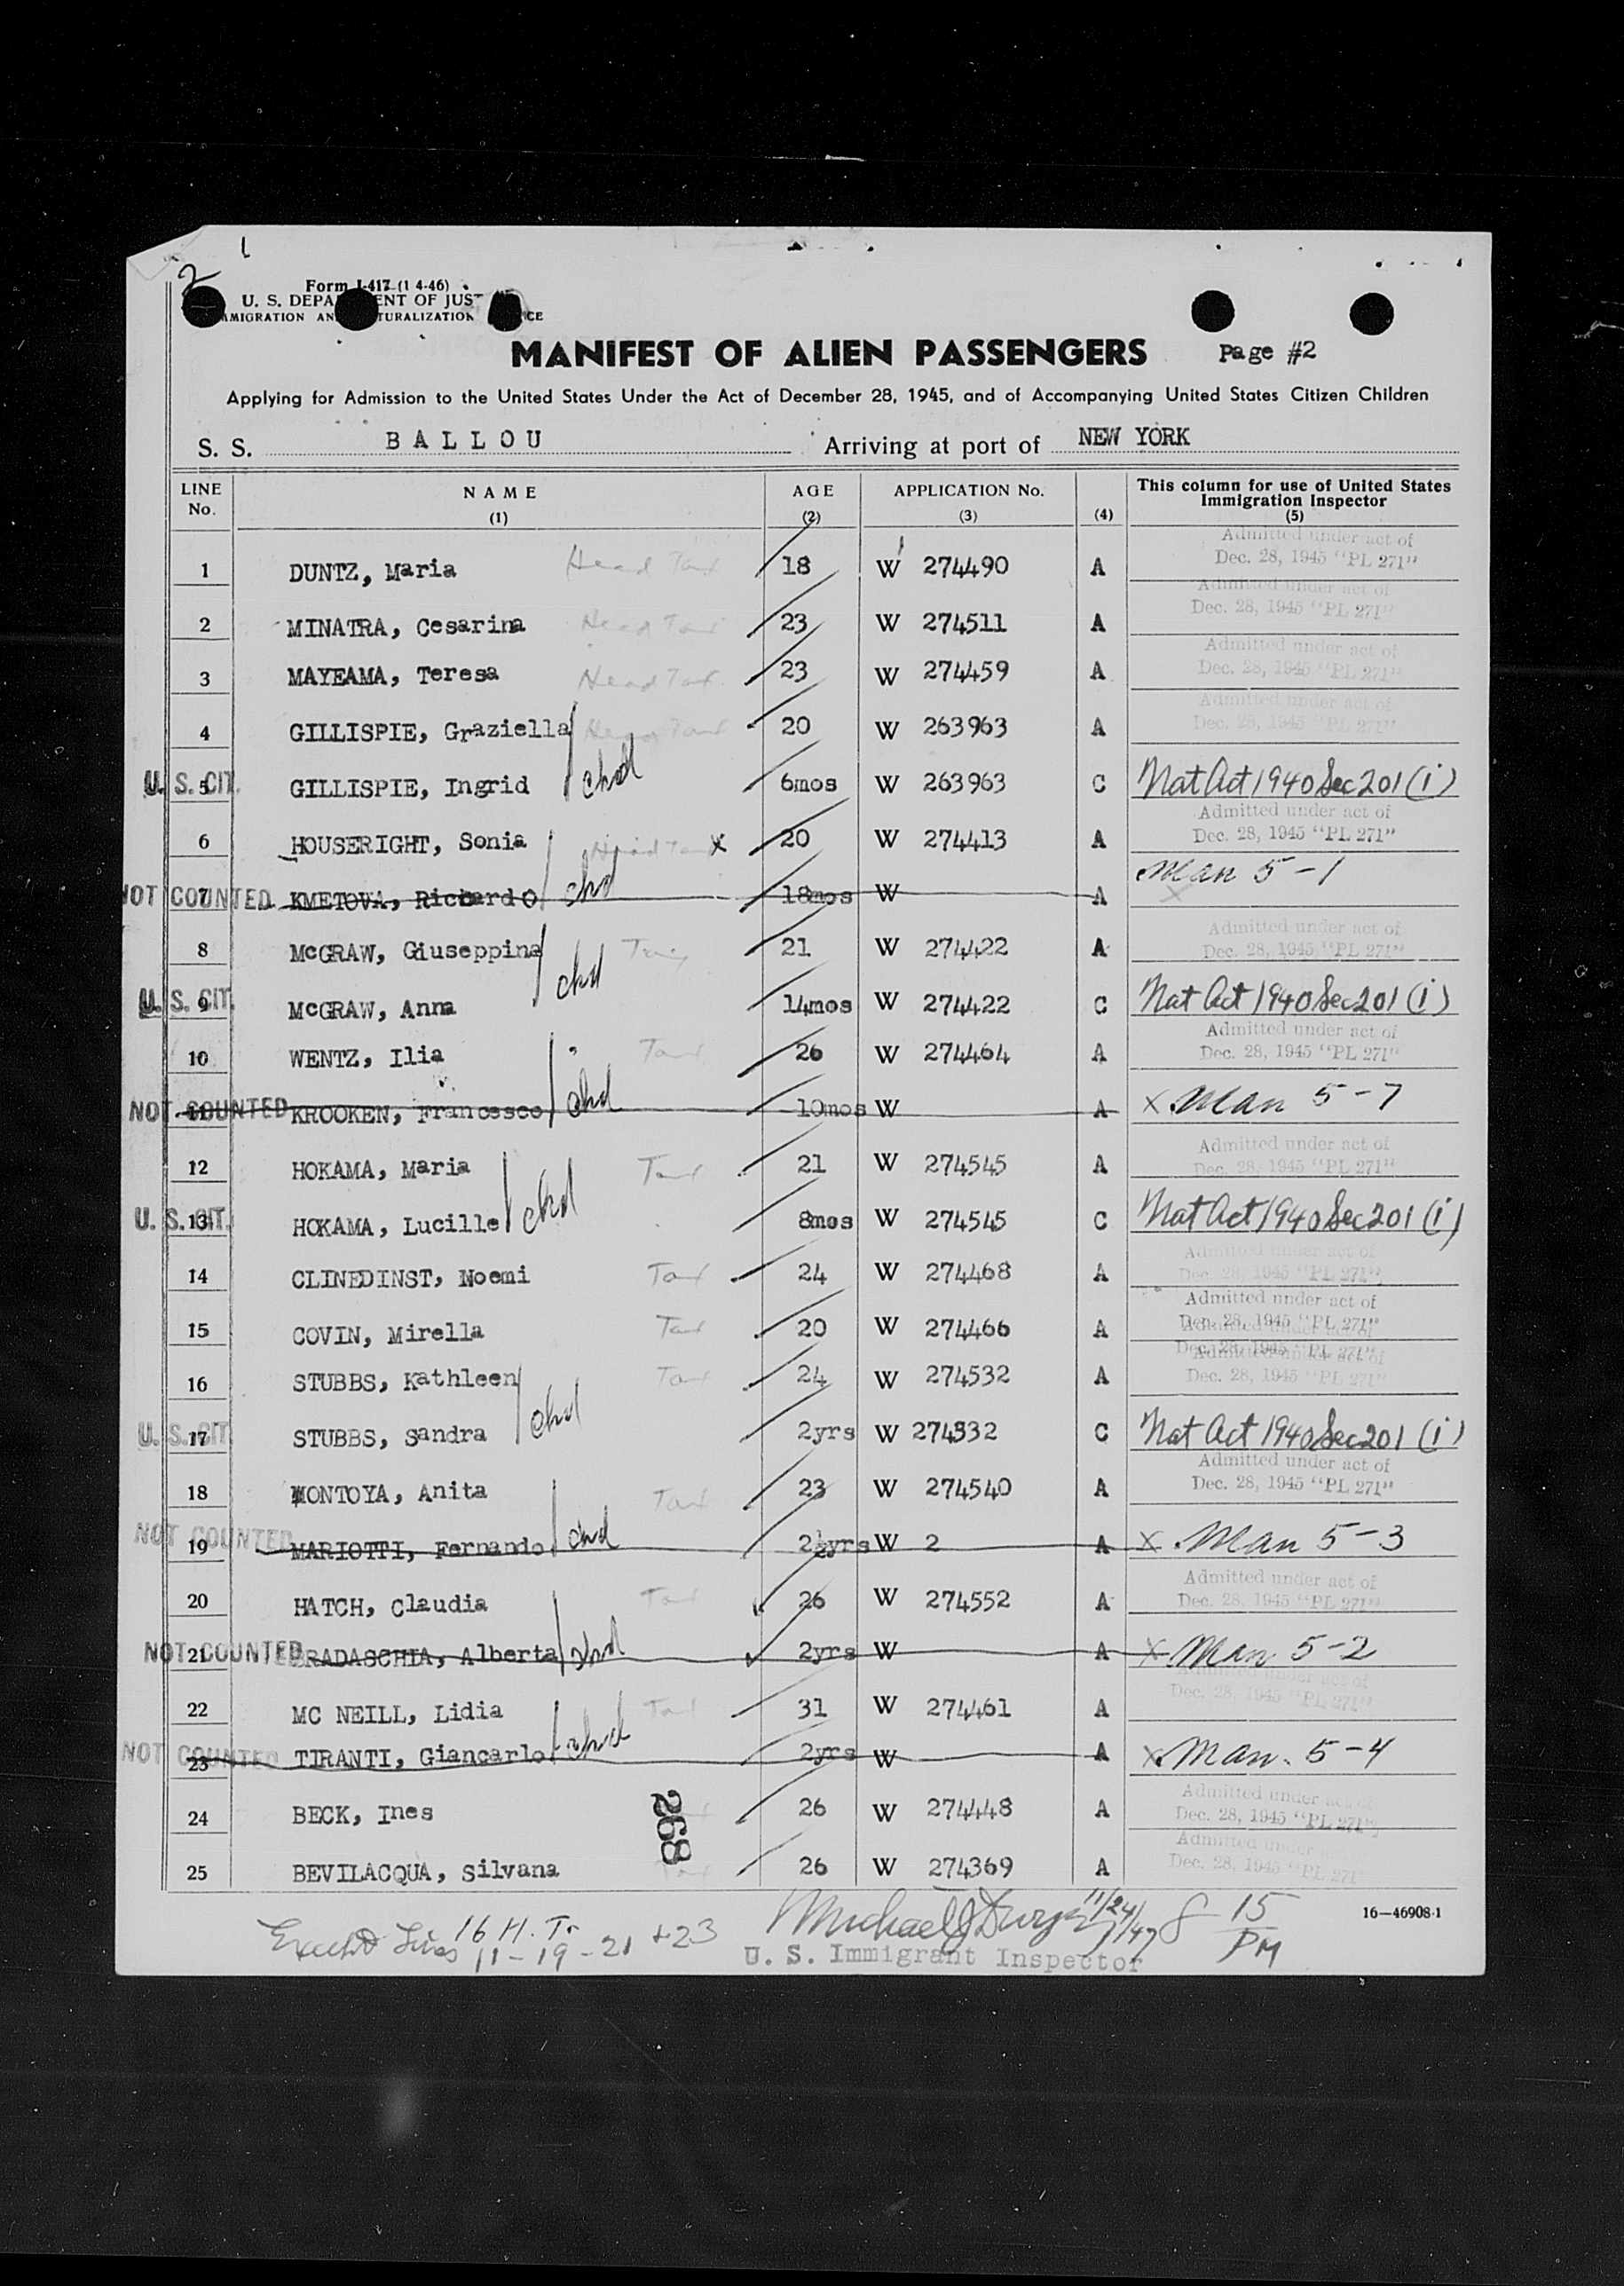 2
Form I-417 (1 4-46)
U. S. DEPA ENT OF JUST
MIGRATION AN TURALIZATION CE
MANIFEST OF ALIEN PASSENGERS Page #2
Applying for Admission to the United States Under the Act of December 28, 1945, and of Accompanying United States Citizen Children
S. S. BALLOU Arriving at port of NEW YORK
LINE No. NAME (1) AGE (2) APPLICATION No. (3) (4) This column for use of United States Immigration Inspector (5)
1 DUNTZ, Maria Head Tax 18 W 274490 A Admitted under act of Dec. 28, 1945 "PL 271"
2 MINATRA, Cesarina Head Tax 23 W 274511 A Admitted under act of Dec. 28, 1945 "PL 271"
3 MAYEAMA, Teresa Head Tax 23 W 274459 A Admitted under act of Dec. 28, 1945 "PL 271"
4 GILLISPIE, Graziella Head Tax 20 W 263963 A Admitted under act of Dec. 28, 1945 "PL 271"
U. S. CIT. 5 GILLISPIE, Ingrid chd 6mos W 263963 C Nat Act 1940 Sec 201 (i)
6 HOUSERIGHT, Sonia Head Tax X 20 W 274413 A Admitted under act of Dec. 28, 1945 "PL 271"
NOT COUNTED 7 KMETOVA, Riccardo chd 18mos W A Man 5-1 X
8 McGRAW, Giuseppina Tax 21 W 274422 A Admitted under act of Dec. 28, 1945 "PL 271"
U. S. CIT. 9 McGRAW, Anna chd 14mos W 274422 C Nat Act 1940 Sec 201 (i)
10 WENTZ, Ilia Tax 26 W 274464 A Admitted under act of Dec. 28, 1945 "PL 271"
NOT COUNTED 11 KROOKEN, Francesco chd 10mos W A X Man 5-7
12 HOKAMA, Maria Tax 21 W 274545 A Admitted under act of Dec. 28, 1945 "PL 271"
U. S. CIT. 13 HOKAMA, Lucille chd 8mos W 274545 C Nat Act 1940 Sec 201 (i)
14 CLINEDINST, Noemi Tax 24 W 274468 A Admitted under act of Dec. 28, 1945 "PL 271"
15 COVIN, Mirella Tax 20 W 274466 A Admitted under act of Dec. 28, 1945 "PL 271"
16 STUBBS, Kathleen Tax 24 W 274532 A Admitted under act of Dec. 28, 1945 "PL 271"
U. S. CIT. 17 STUBBS, Sandra chd 2yrs W 274532 C Nat Act 1940 Sec 201 (i)
18 MONTOYA, Anita Tax 23 W 274540 A Admitted under act of Dec. 28, 1945 "PL 271"
NOT COUNTED 19 MARIOTTI, Fernando chd 2½yrs W 2 A X Man 5-3
20 HATCH, Claudia Tax 26 W 274552 A Admitted under act of Dec. 28, 1945 "PL 271"
NOT COUNTED 21 RADASCHIA, Alberta chd 2yrs W A X Man 5-2
22 MC NEILL, Lidia Tax 31 W 274461 A Dec. 28, 1945 "PL 271"
NOT COUNTED 23 TIRANTI, Giancarlo chd 2yrs W A X Man. 5-4
24 BECK, Ines 26 W 274448 A Admitted under act of Dec. 28, 1945 "PL 271"
268
25 BEVILACQUA, Silvana Tax 26 W 274369 A Admitted under Dec. 28, 1945 "PL 271
16 H. T. Michael J 11/24/47 8 15 PM 16—46908-1
11-19-21 +23 U. S. Immigrant Inspector